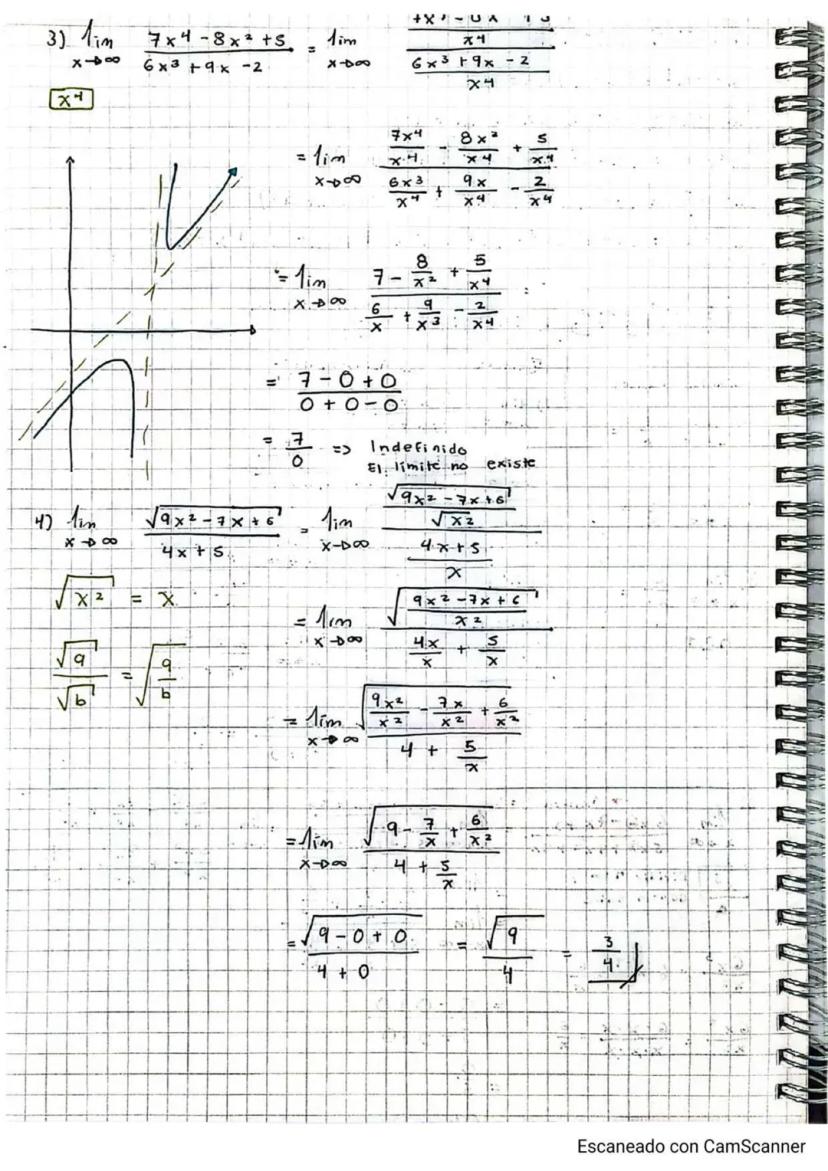 3) lim 7x⁴ - 8x² + 5 / 6x³ + 9x - 2 = lim / x⁴ / 6x³ + 9x - 2 / x⁴
x→∞ x→∞
x⁴
= lim 7x⁴/x⁴ - 8x²/x⁴ + 5/x⁴ / 6x³/x⁴ + 9x/x⁴ - 2/x⁴
x→∞
= lim 7 - 8/x² + 5/x⁴ / 6/x + 9/x³ - 2/x⁴
x→∞
= 7 - 0 + 0 / 0 + 0 - 0
= 7/0 => Indefinido
El límite no existe
4) lim √9x² - 7x + 6 / 4x + 5 = lim √9x² - 7x + 6 / √x² / 4x + 5 / x
x→∞ x→∞
√x² = x
= lim √(9x² - 7x + 6 / x²) / 4x/x + 5/x
x→∞
√a/√b = √(a/b)
= lim √(9x²/x² - 7x/x² + 6/x²) / 4 + 5/x
x→∞
= lim √(9 - 7/x + 6/x²) / 4 + 5/x
x→∞
= √9 - 0 + 0 / 4 + 0 = √9 / 4 = 3/4
Escaneado con CamScanner